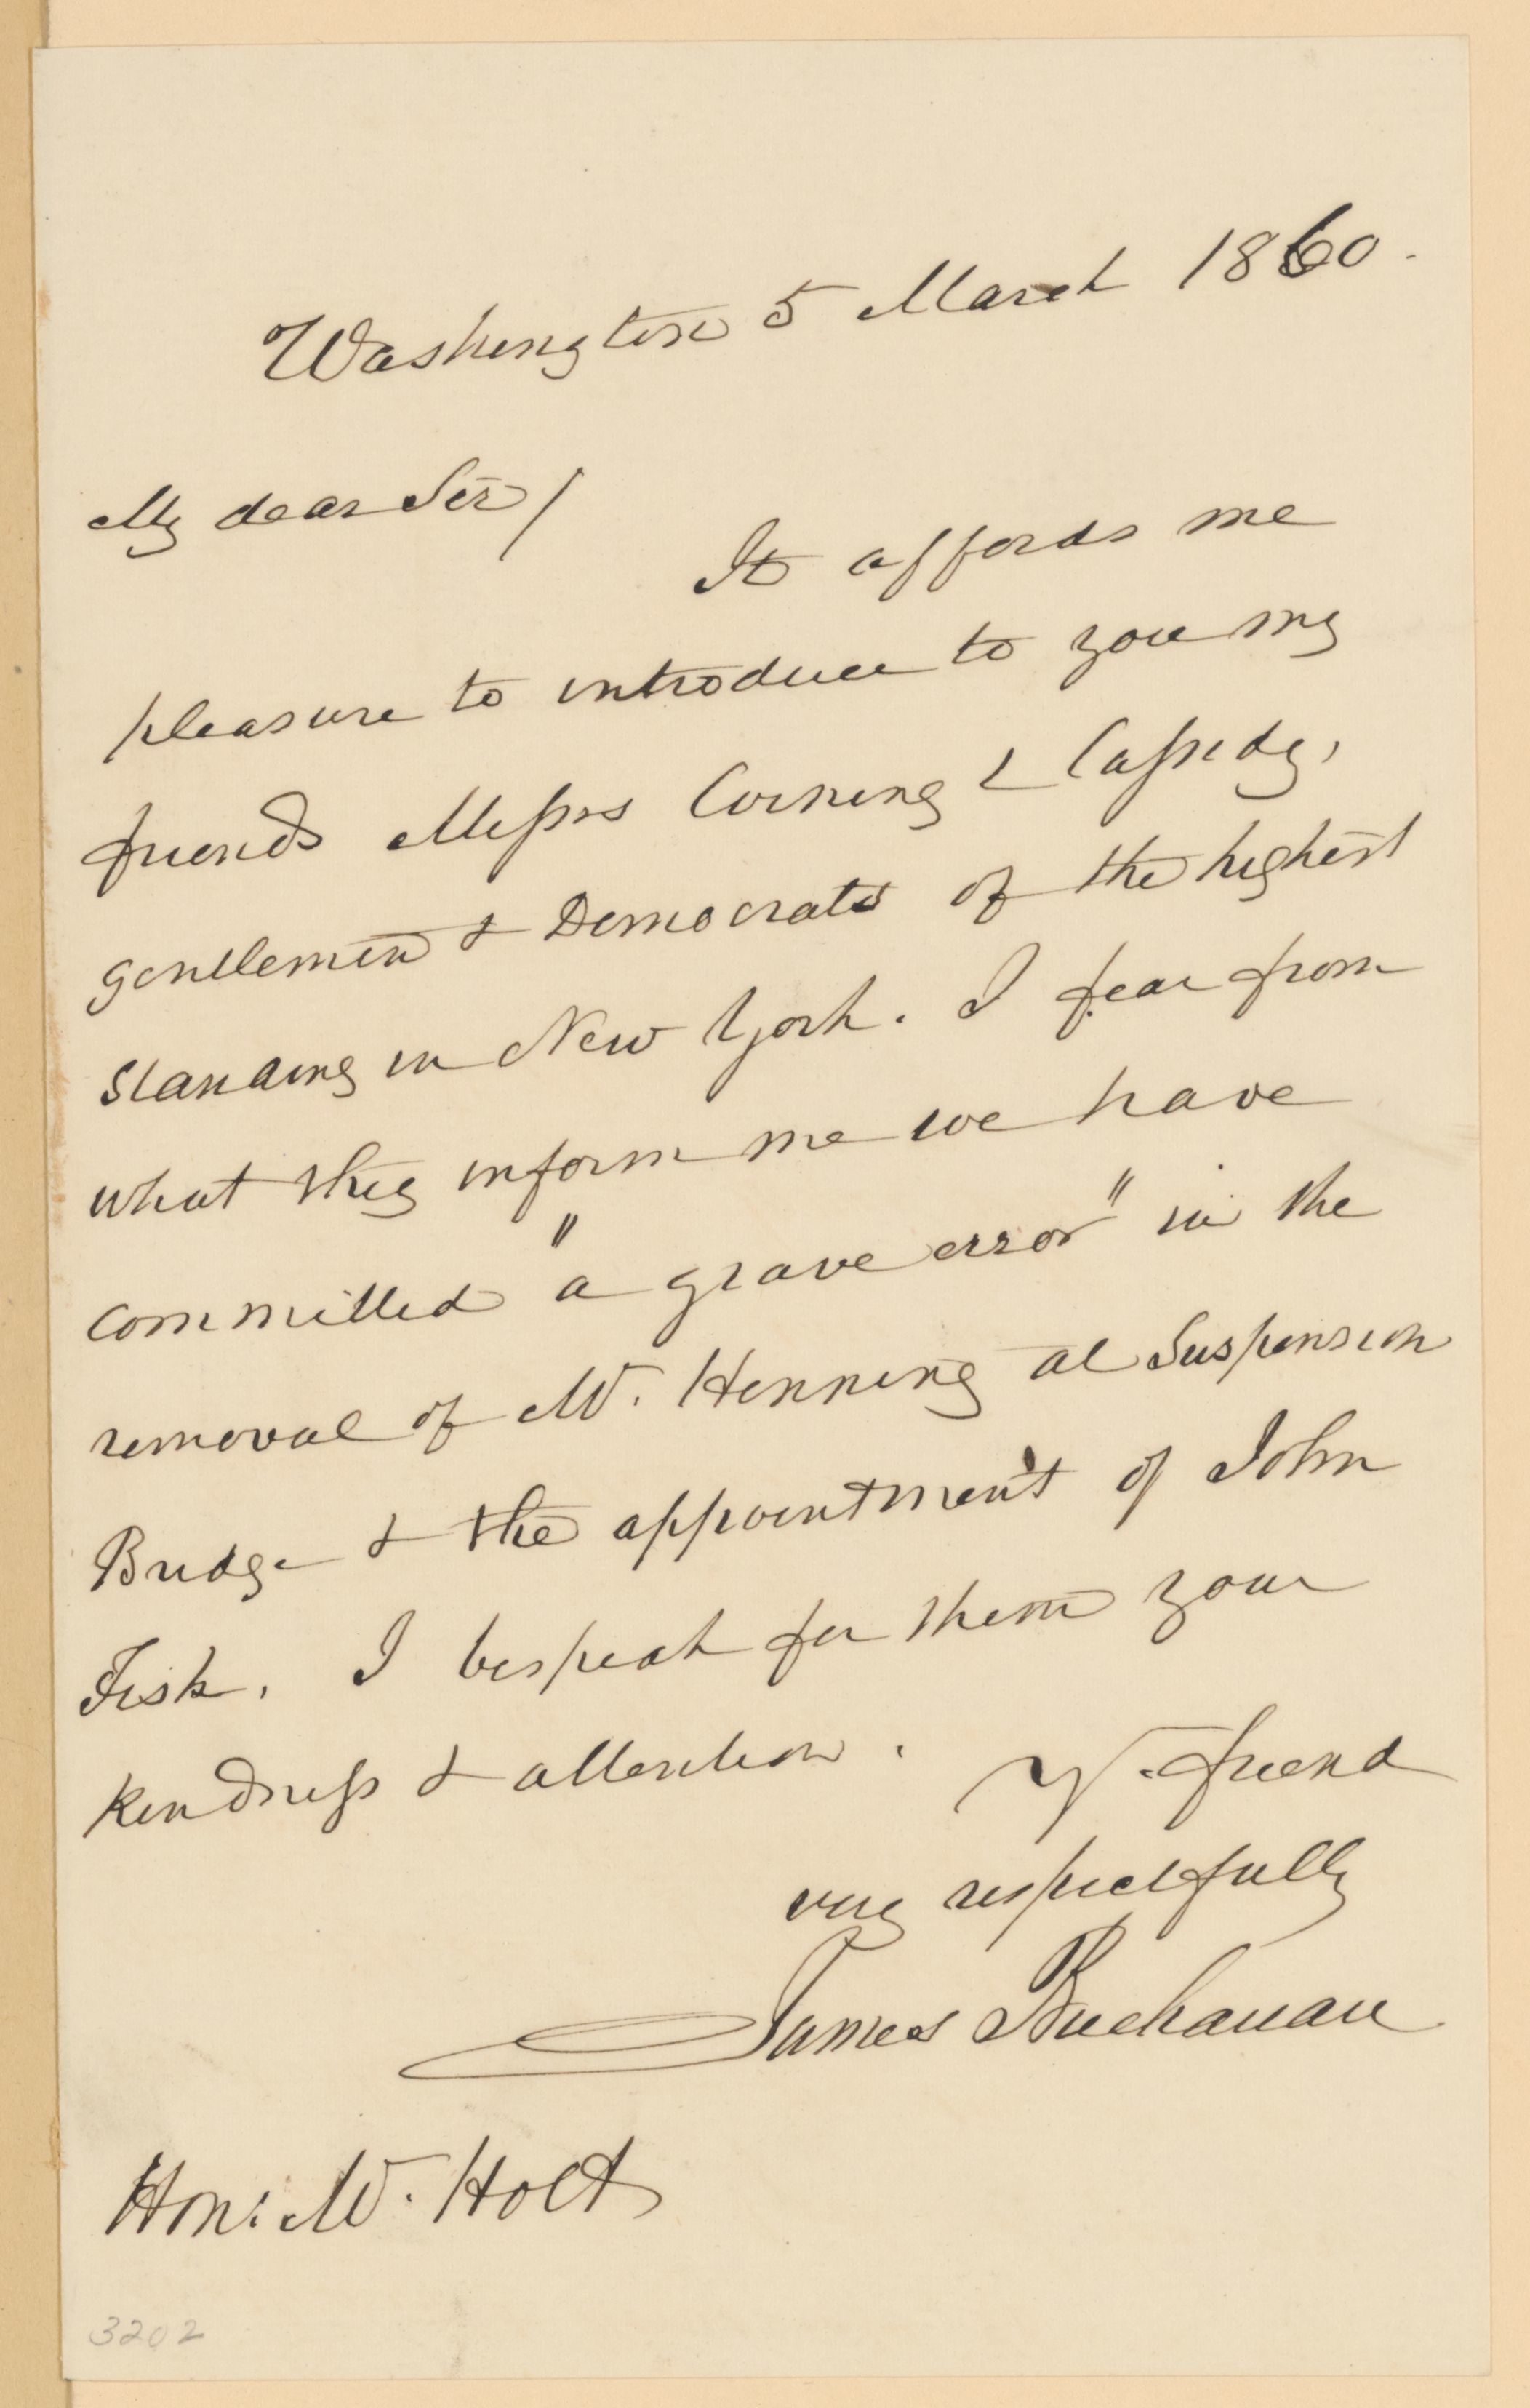 Washington 5 March 1860.
My dear Sir/
It affords me
pleasure to introduce to you my
friends Messrs Corning & Cassidy,
gentlemen & Democrats of the highest
standing in New York. I fear from
what they inform me we have
committed "a grave error" in the
removal of Mr. Henning at Suspension
Bridge & the appointment of John
Fisk. I bespeak for them your
kindness & attention.
Yr. friend
very respectfully
James Buchanan
Hon: Mr. Holt
3202